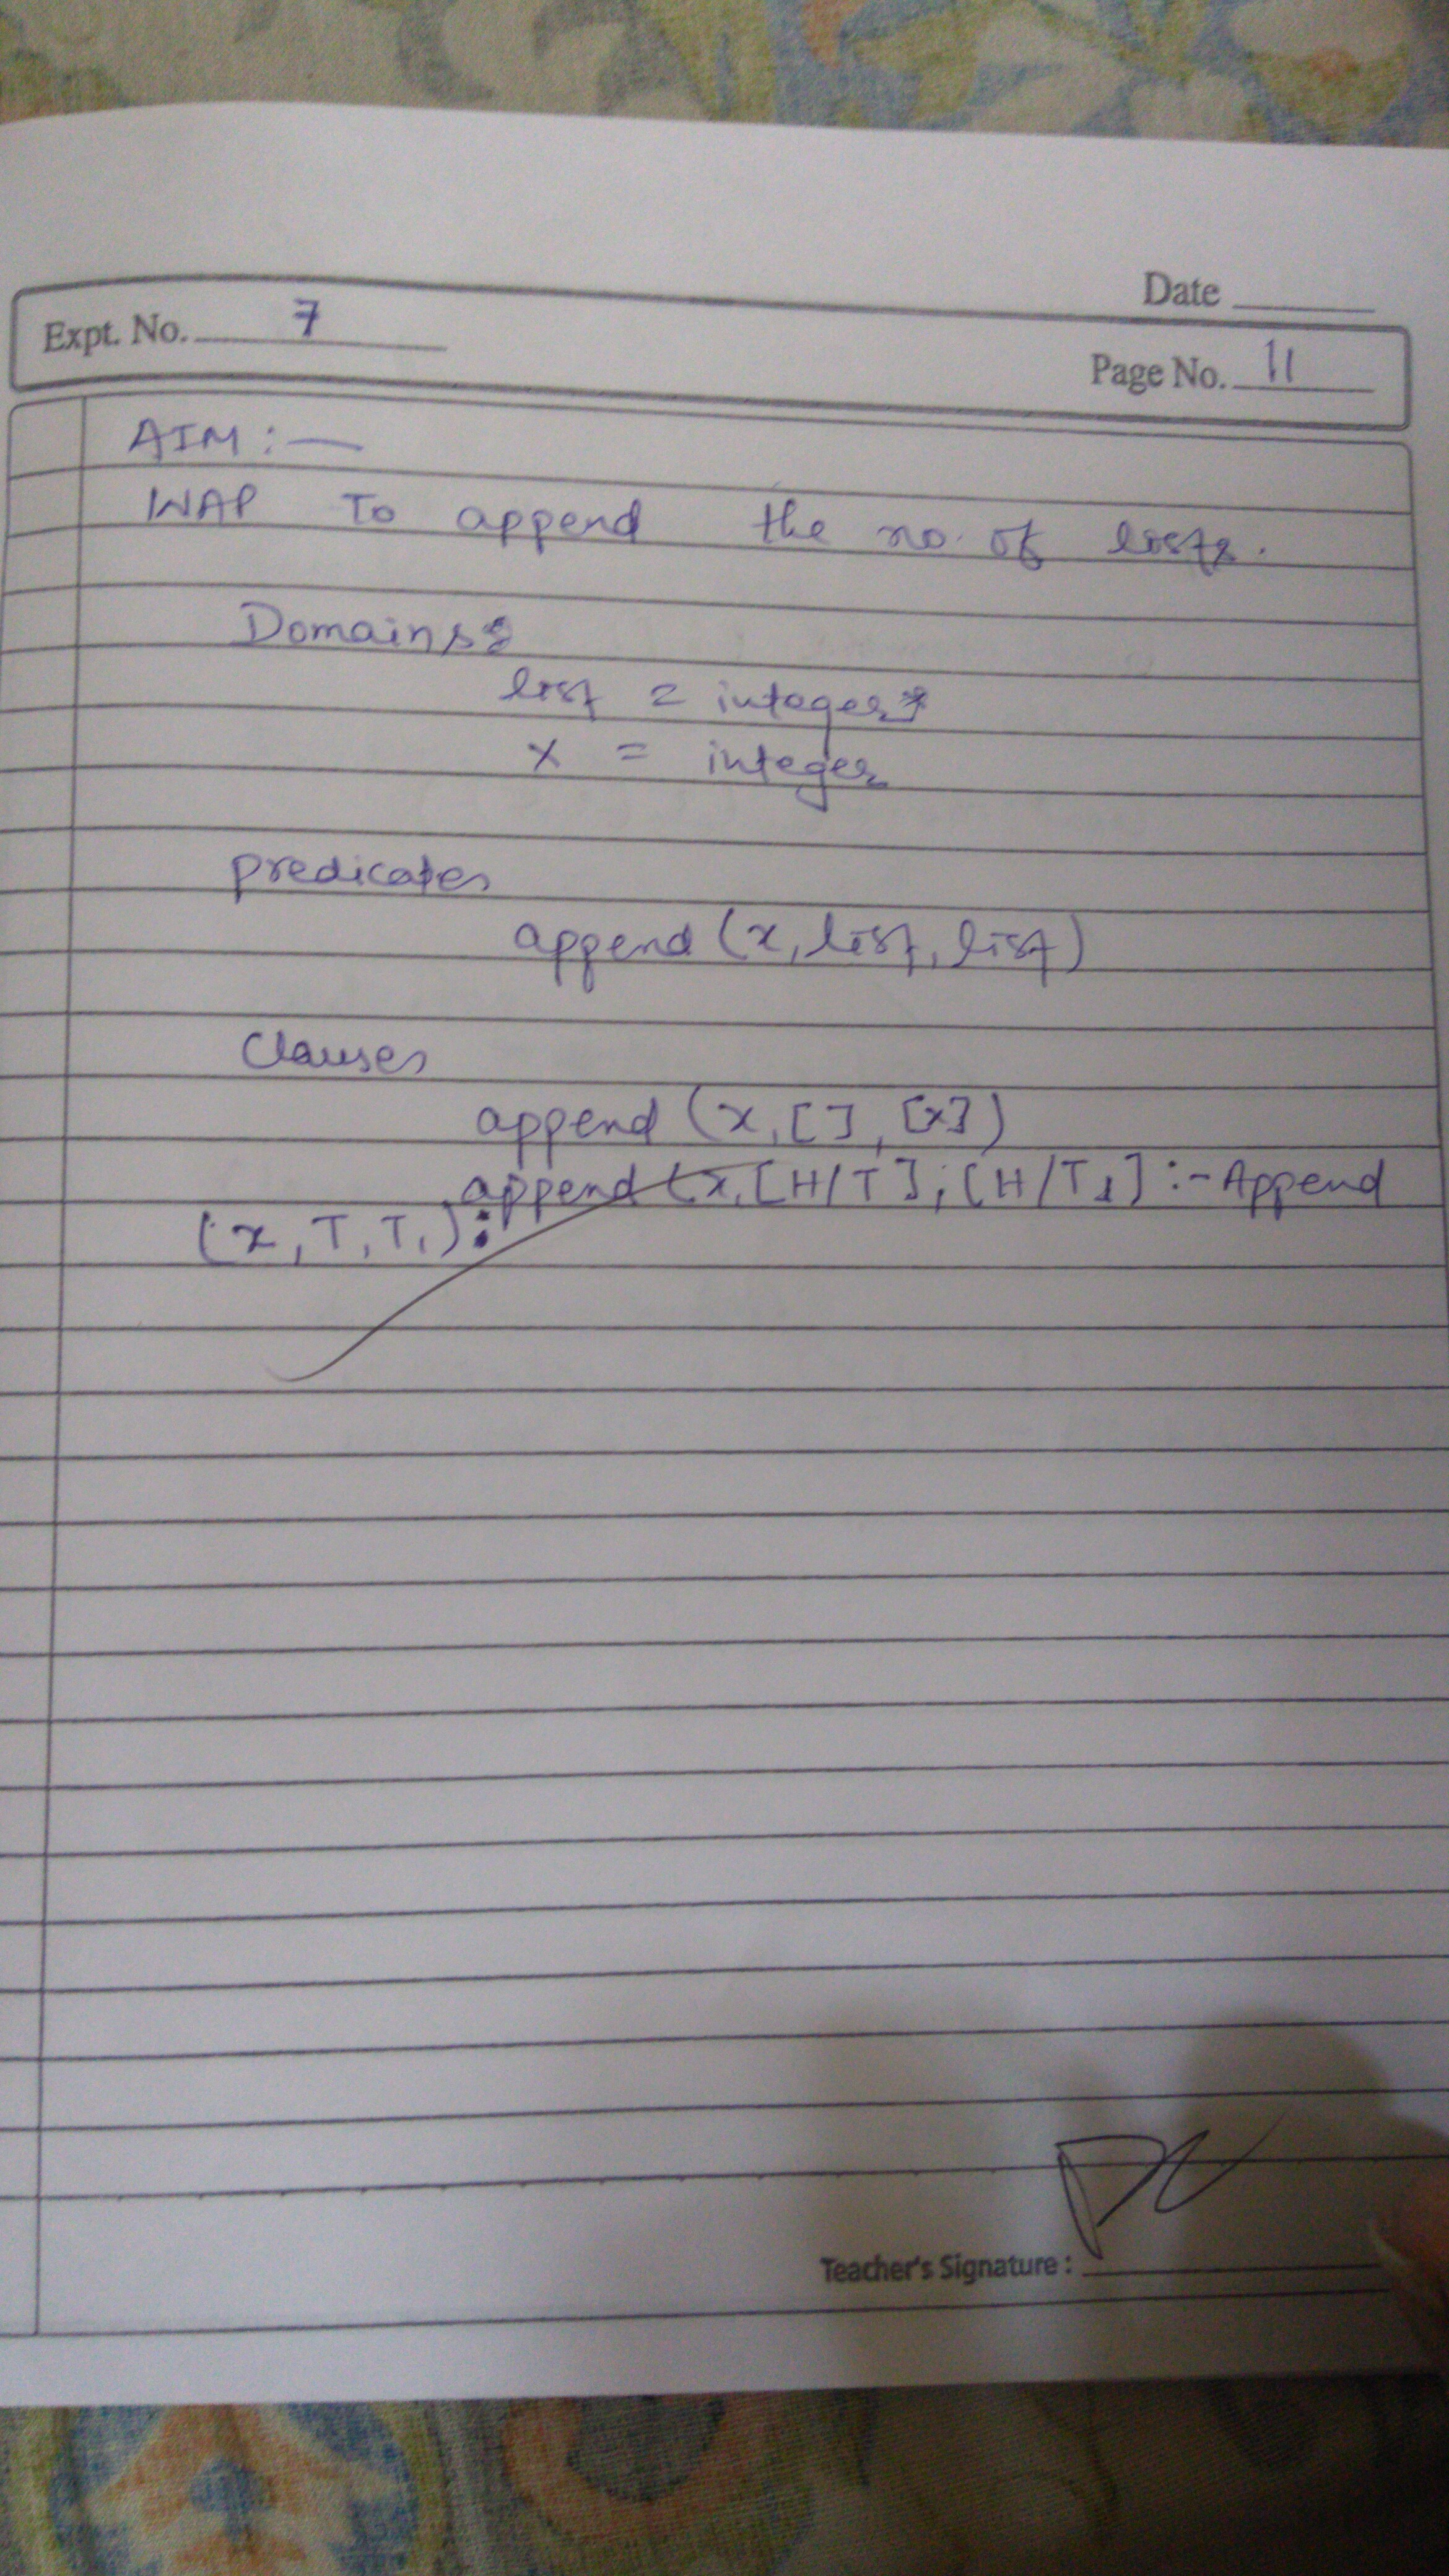 Date
Expt. No. 7
Page No. 11
AIM :—
WAP To append the no. of lists.
Domains:
list = integer*
x = integer
predicates
append (x, list, list)
Clauses
append (x, [ ], [x])
append (x, [H/T], [H/T1] :- Append
(x, T, T1):
Teacher's Signature :